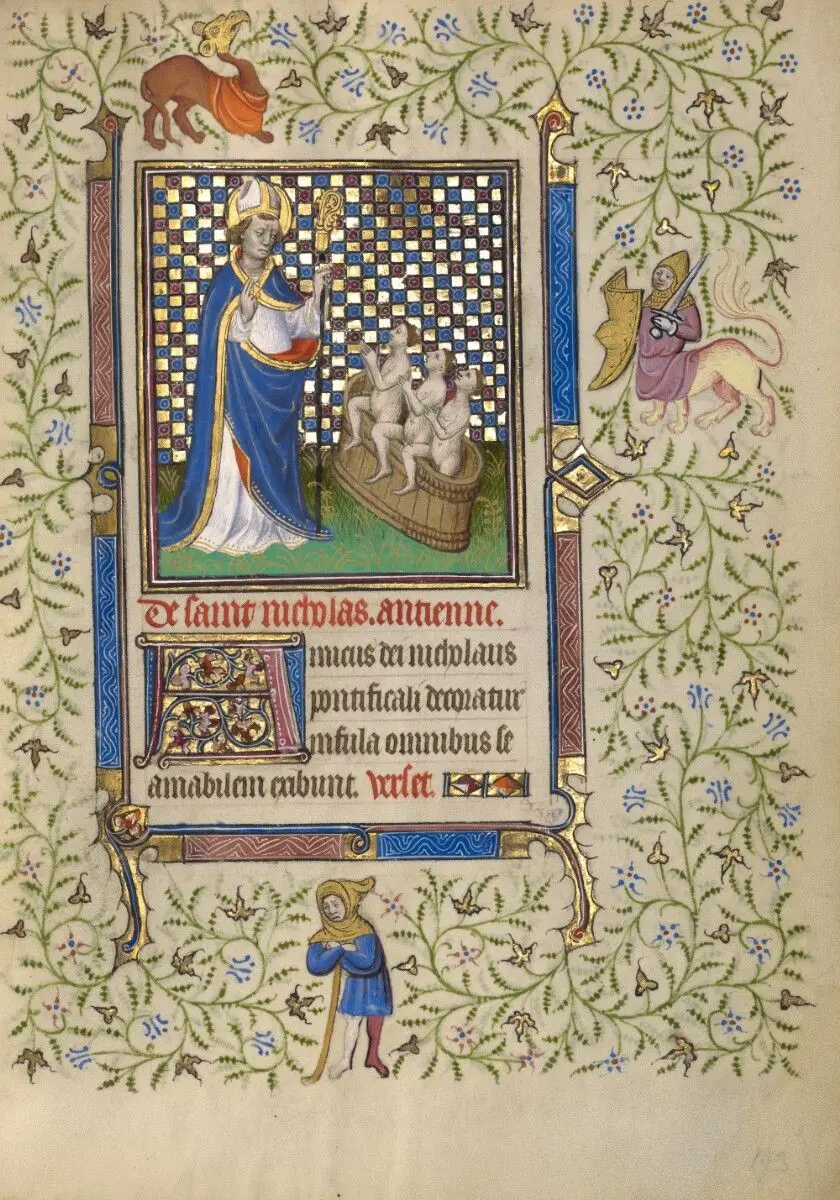 De saint nicholas. antienne.
Amicus dei nicholaus
pontificali decoratur
infula omnibus se
amabilem exibunt. verset.